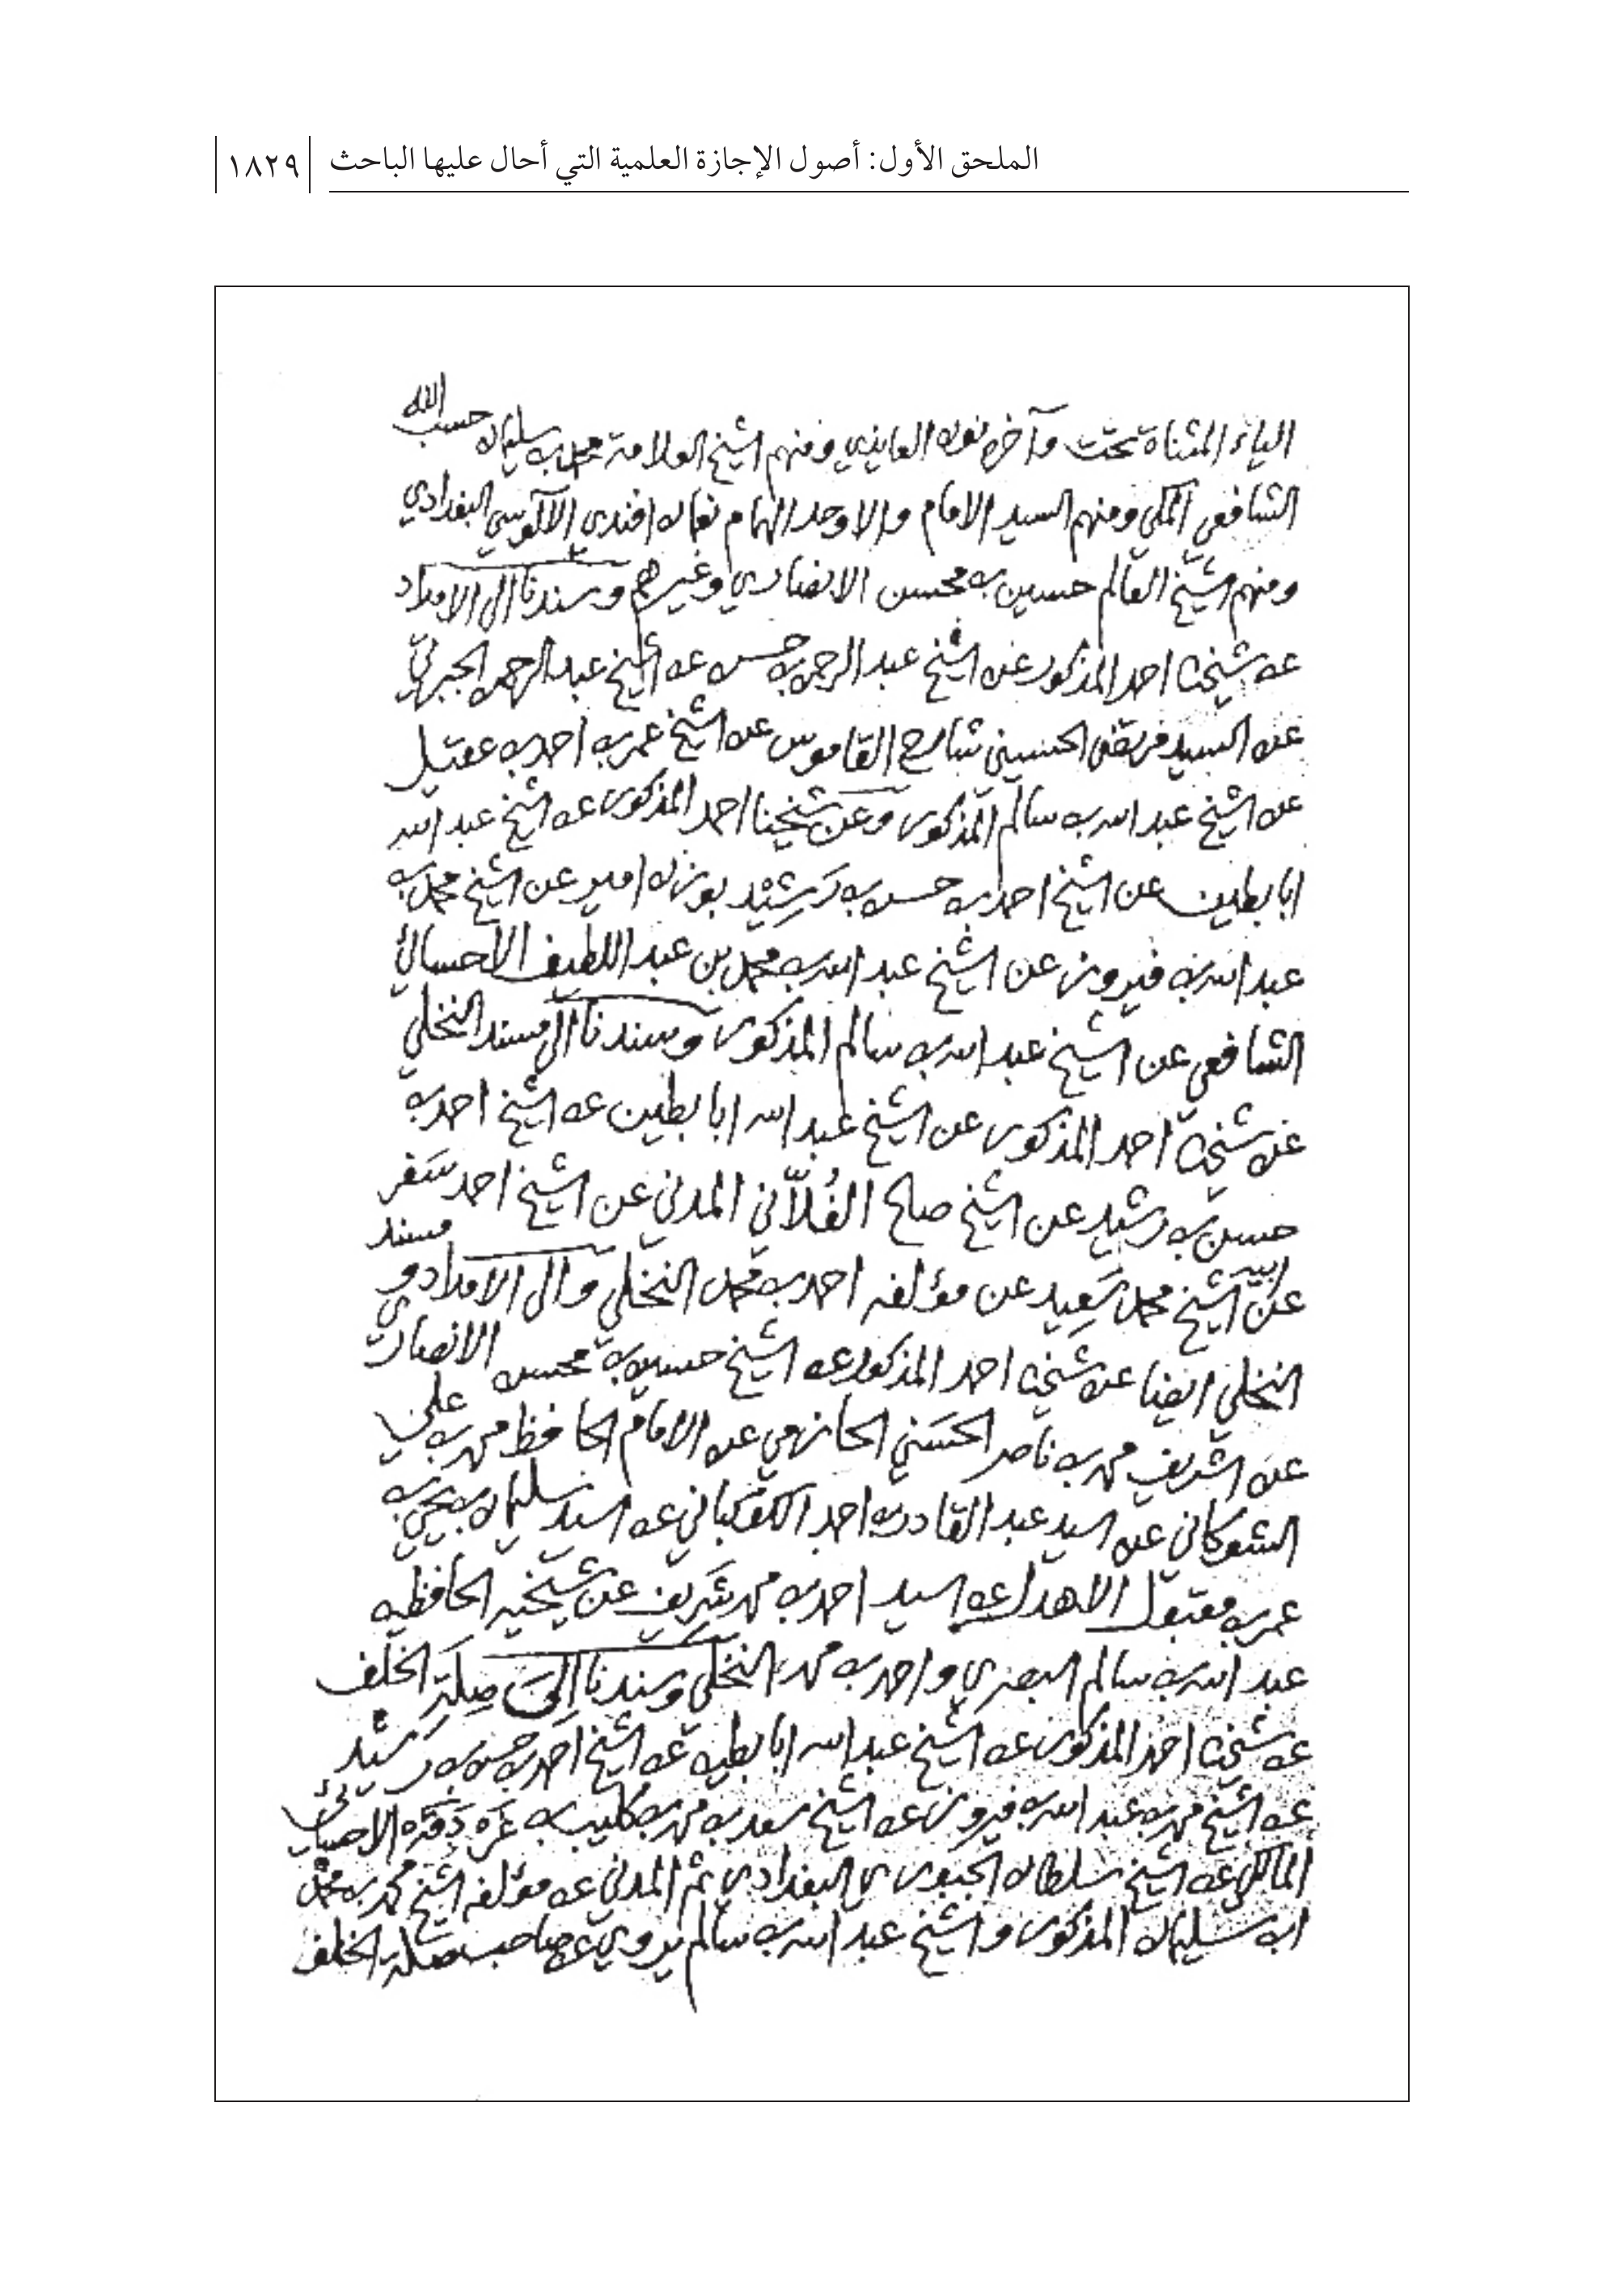 الملحق الأول: أصول الإجازة العلمية التي أحال عليها الباحث ١٨٢٩
الياء المثناة تحت وآخره نون العايذي ومنهم الشيخ العلامة محمد بن سليمان حسب الله
الشافعي المكي ومنهم السيد الامام والاوحد الهمام نعمان افندي الآلوسي البغدادي
ومنهم الشيخ العالم حسين بن محسن الانصاري وغيرهم وسندنا الى الامداد
عن شيخنا احمد المذكور عن الشيخ عبد الرحمن بن حسن عن الشيخ عبد الرحمن الجبرتي
عن السيد مرتضى الحسيني شارح القاموس عن الشيخ عمر بن احمد بن عقيل
عن الشيخ عبد الله بن سالم المذكور وعن شيخنا احمد المذكور عن الشيخ عبد الله
ابا بطين عن الشيخ احمد بن حسن بن رشيد بوزن امير عن الشيخ محمد بن
عبد الله بن فيروز عن الشيخ عبد الله بن محمد بن عبد اللطيف الاحسائي
الشافعي عن الشيخ عبد الله بن سالم المذكور وسندنا الى مسند النخلي
عن شيخنا احمد المذكور عن الشيخ عبد الله ابا بطين عن الشيخ احمد بن
حسن بن رشيد عن الشيخ صالح الفُلاّني المدني عن الشيخ احمد سفر
عن ابيه الشيخ محمد سعيد عن مؤلفه احمد بن محمد النخلي والى الامداد و مسند
النخلي ايضا عن شيخنا احمد المذكور عن الشيخ حسين بن محسن الانصاري
عن الشريف محمد بن ناصر الحسني الحازمي عن الامام الحافظ محمد بن علي
الشوكاني عن السيد عبد القادر بن احمد الكوكباني عن السيد سليمان بن يحيى بن
عمر بن مقبول الاهدل عن السيد احمد بن محمد شريف عن شيخيه الحافظين
عبد الله بن سالم البصري واحمد بن محمد النخلي وسندنا الى صلة الخلف
عن شيخنا احمد المذكور عن الشيخ عبد الله ابا بطين عن الشيخ احمد بن حسن بن رشيد
عن الشيخ محمد بن عبد الله بن فيروز عن الشيخ سعد بن محمد بن كليب بن الاحسائي
المالكي عن الشيخ سلطان الجبوري البغدادي ثم المدني عن مؤلفه الشيخ محمد بن محمد
ابن سليمان المذكور والشيخ عبد الله بن سالم يروي عن صاحب صلة الخلف